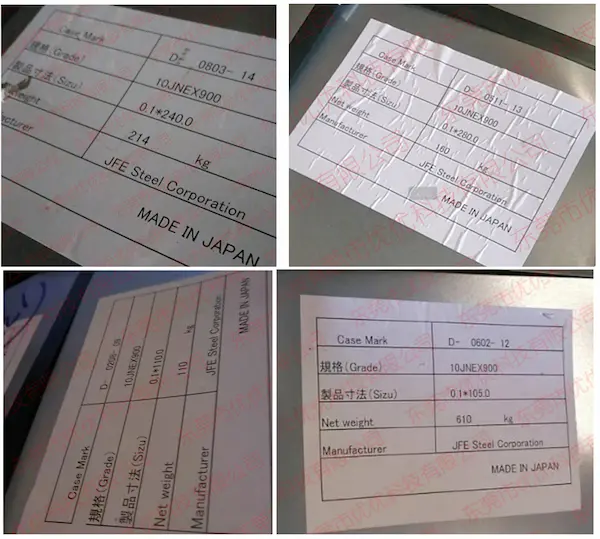 Case Mark D- 0803- 14
規格(Grade) 10JNEX900
製品寸法(Sizu) 0.1*240.0
weight 214 kg
JFE Steel Corporation
MADE IN JAPAN
Case Mark D- 0511- 13
規格(Grade) 10JNEX900
製品寸法(Sizu) 0.1*280.0
Net weight 160 kg
Manufacturer JFE Steel Corporation
MADE IN JAPAN
Case Mark D-
規格(Grade) 10JNEX900
製品寸法(Sizu) 0.1*110.0
Net weight 110 kg
Manufacturer JFE Steel Corporation
MADE IN JAPAN
Case Mark D- 0602- 12
規格(Grade) 10JNEX900
製品寸法(Sizu) 0.1*105.0
Net weight 610 kg
Manufacturer JFE Steel Corporation
MADE IN JAPAN